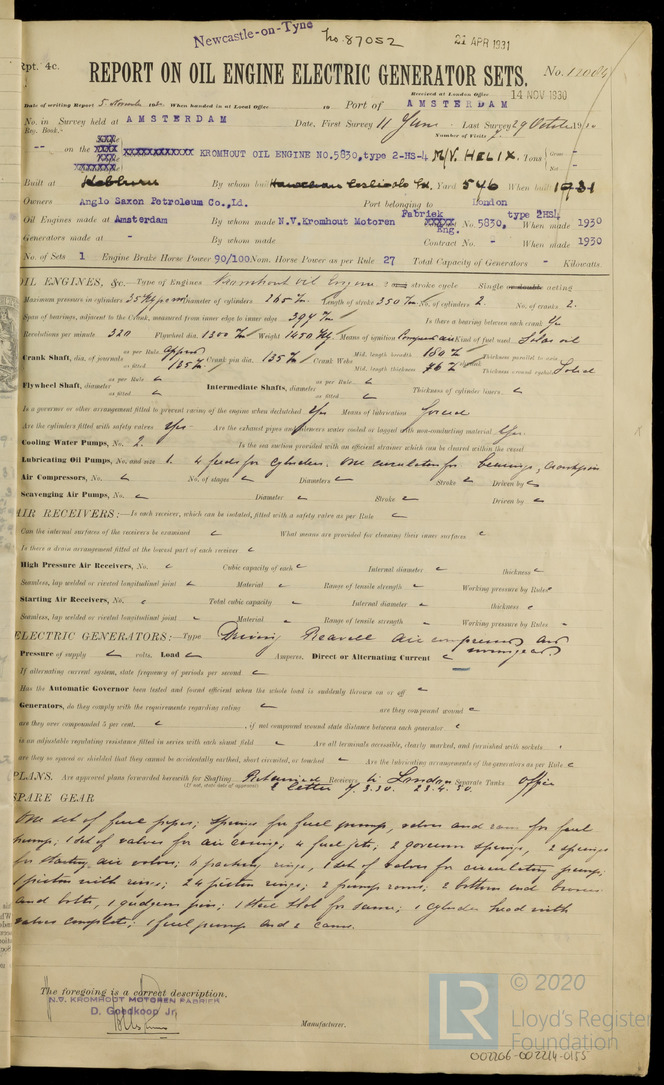 Newcastle-on-Tyne No. 87052 21 APR 1931
Rpt. 4c. REPORT ON OIL ENGINE ELECTRIC GENERATOR SETS. No. 12004
Received at London Office 14 NOV 1930
Date of writing Report 5 When handed in at Local Office 19 Port of AMSTERDAM
No. in Survey held at AMSTERDAM Date, First Survey 11 June Last Survey 29 October 19
Reg. Book. Number of Visits
-- on the KROMHOUT OIL ENGINE NO.5830,type 2-HS-4 M/V. HELIX. Tons Gross - Net -
Built at Hebburn By whom built Hawthorn Leslie & Co Ld. Yard 546 When built 1931
Owners Anglo Saxon Petroleum Co.,Ld. Port belonging to London
Oil Engines made at Amsterdam By whom made N.V.Kromhout Motoren Fabriek Eng. No. 5830, type 2HS4 When made 1930
Generators made at - By whom made Contract No. - When made 1930
No. of Sets 1 Engine Brake Horse Power 90/100 Nom. Horse Power as per Rule 27 Total Capacity of Generators - Kilowatts.
OIL ENGINES, &c.—Type of Engines Kromhout oil engine. 2 stroke cycle Single acting
Maximum pressure in cylinders Diameter of cylinders 265 Length of stroke 350 No. of cylinders 2. No. of cranks 2.
Span of bearings, adjacent to the Crank, measured from inner edge to inner edge 397 Is there a bearing between each crank Yes
Revolutions per minute 320 Flywheel dia. 1300 Weight 1450 Kg. Means of ignition Compress air Kind of fuel used Solar oil
Crank Shaft, dia. of journals as per Rule Approved as fitted 135 Crank pin dia. 135 Crank Webs Mid. length breadth 180 Mid. length thickness 86 Thickness parallel to axis Thickness around eyehole Solid
Flywheel Shaft, diameter as per Rule as fitted Intermediate Shafts, diameter as per Rule as fitted Thickness of cylinder liners
Is a governor or other arrangement fitted to prevent racing of the engine when declutched Yes Means of lubrication forced
Are the cylinders fitted with safety valves Yes Are the exhaust pipes and silencers water cooled or lagged with non-conducting material Yes.
Cooling Water Pumps, No. 2. Is the sea suction provided with an efficient strainer which can be cleared within the vessel
Lubricating Oil Pumps, No. and size 1. 4 feeds for cylinders. One circulation for bearings, crankpin
Air Compressors, No. No. of stages Diameters Stroke Driven by
Scavenging Air Pumps, No. Diameter Stroke Driven by
AIR RECEIVERS:—Is each receiver, which can be isolated, fitted with a safety valve as per Rule
Can the internal surfaces of the receivers be examined What means are provided for cleaning their inner surfaces
Is there a drain arrangement fitted at the lowest part of each receiver
High Pressure Air Receivers, No. Cubic capacity of each Internal diameter thickness
Seamless, lap welded or riveted longitudinal joint Material Range of tensile strength Working pressure by Rules
Starting Air Receivers, No. Total cubic capacity Internal diameter thickness
Seamless, lap welded or riveted longitudinal joint Material Range of tensile strength Working pressure by Rules
ELECTRIC GENERATORS:—Type Driving Reavell air compressor and
Pressure of supply volts. Load Amperes. Direct or Alternating Current
If alternating current system, state frequency of periods per second
Has the Automatic Governor been tested and found efficient when the whole load is suddenly thrown on or off
Generators, do they comply with the requirements regarding rating are they compound wound
are they over compounded 5 per cent. , if not compound wound state distance between each generator
is an adjustable regulating resistance fitted in series with each shunt field Are all terminals accessible, clearly marked, and furnished with sockets
are they so spaced or shielded that they cannot be accidentally earthed, short circuited, or touched Are the lubricating arrangements of the generators as per Rule
PLANS. Are approved plans forwarded herewith for Shafting Retained Receivers in London Separate Tanks Office
(If not, state date of approval) letter 7.3.30. 23.4.30.
SPARE GEAR
One set of fuel pipes; springs for fuel pump, valves and ram for fuel
pump; 1 set of valves for air casings; 4 fuel jets; 2 governor springs, 2 springs
for starting air valves; 6 packing rings, 1 set of valves for circulating pump;
1 piston with rings; 24 piston rings; 2 pump rams; 2 bottom end brasses
and bolts, 1 gudgeon pin; 1 steel for same; 1 cylinder head with
valves complete; 1 fuel pump and 2 cams.
The foregoing is a correct description,
N.V. KROMHOUT MOTOREN FABRIEK
D. Goedkoop Jr.
Manufacturer.
LR © 2020
Lloyd's Register
Foundation
002206-002214-0155